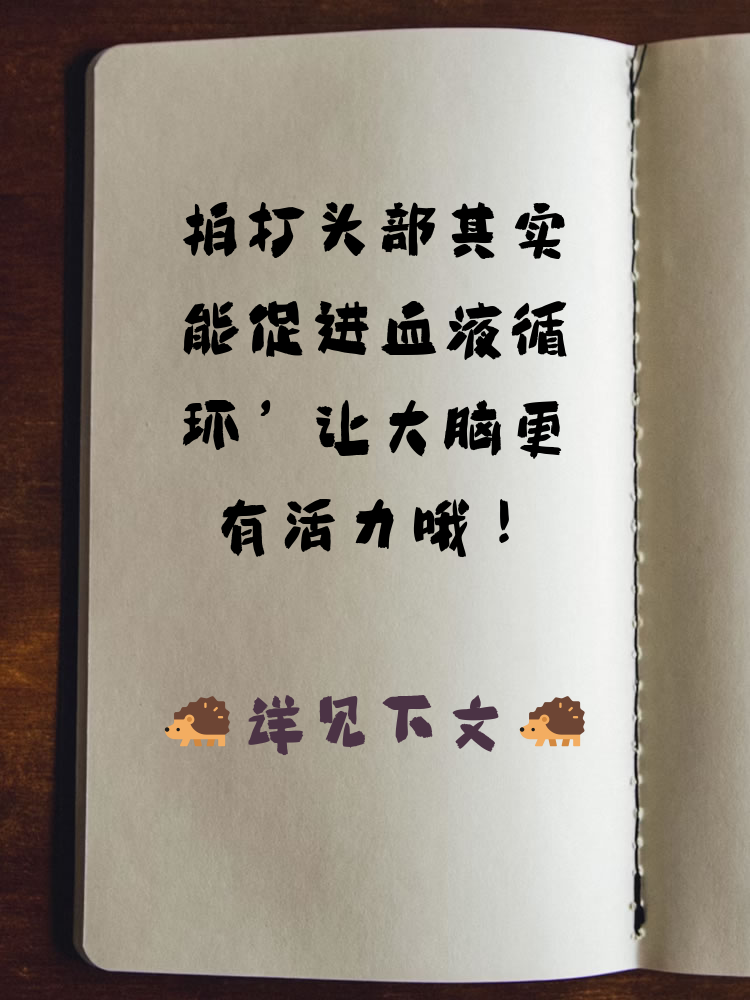 拍打头部其实
能促进血液循
环，让大脑更
有活力哦！
🦔详见下文🦔